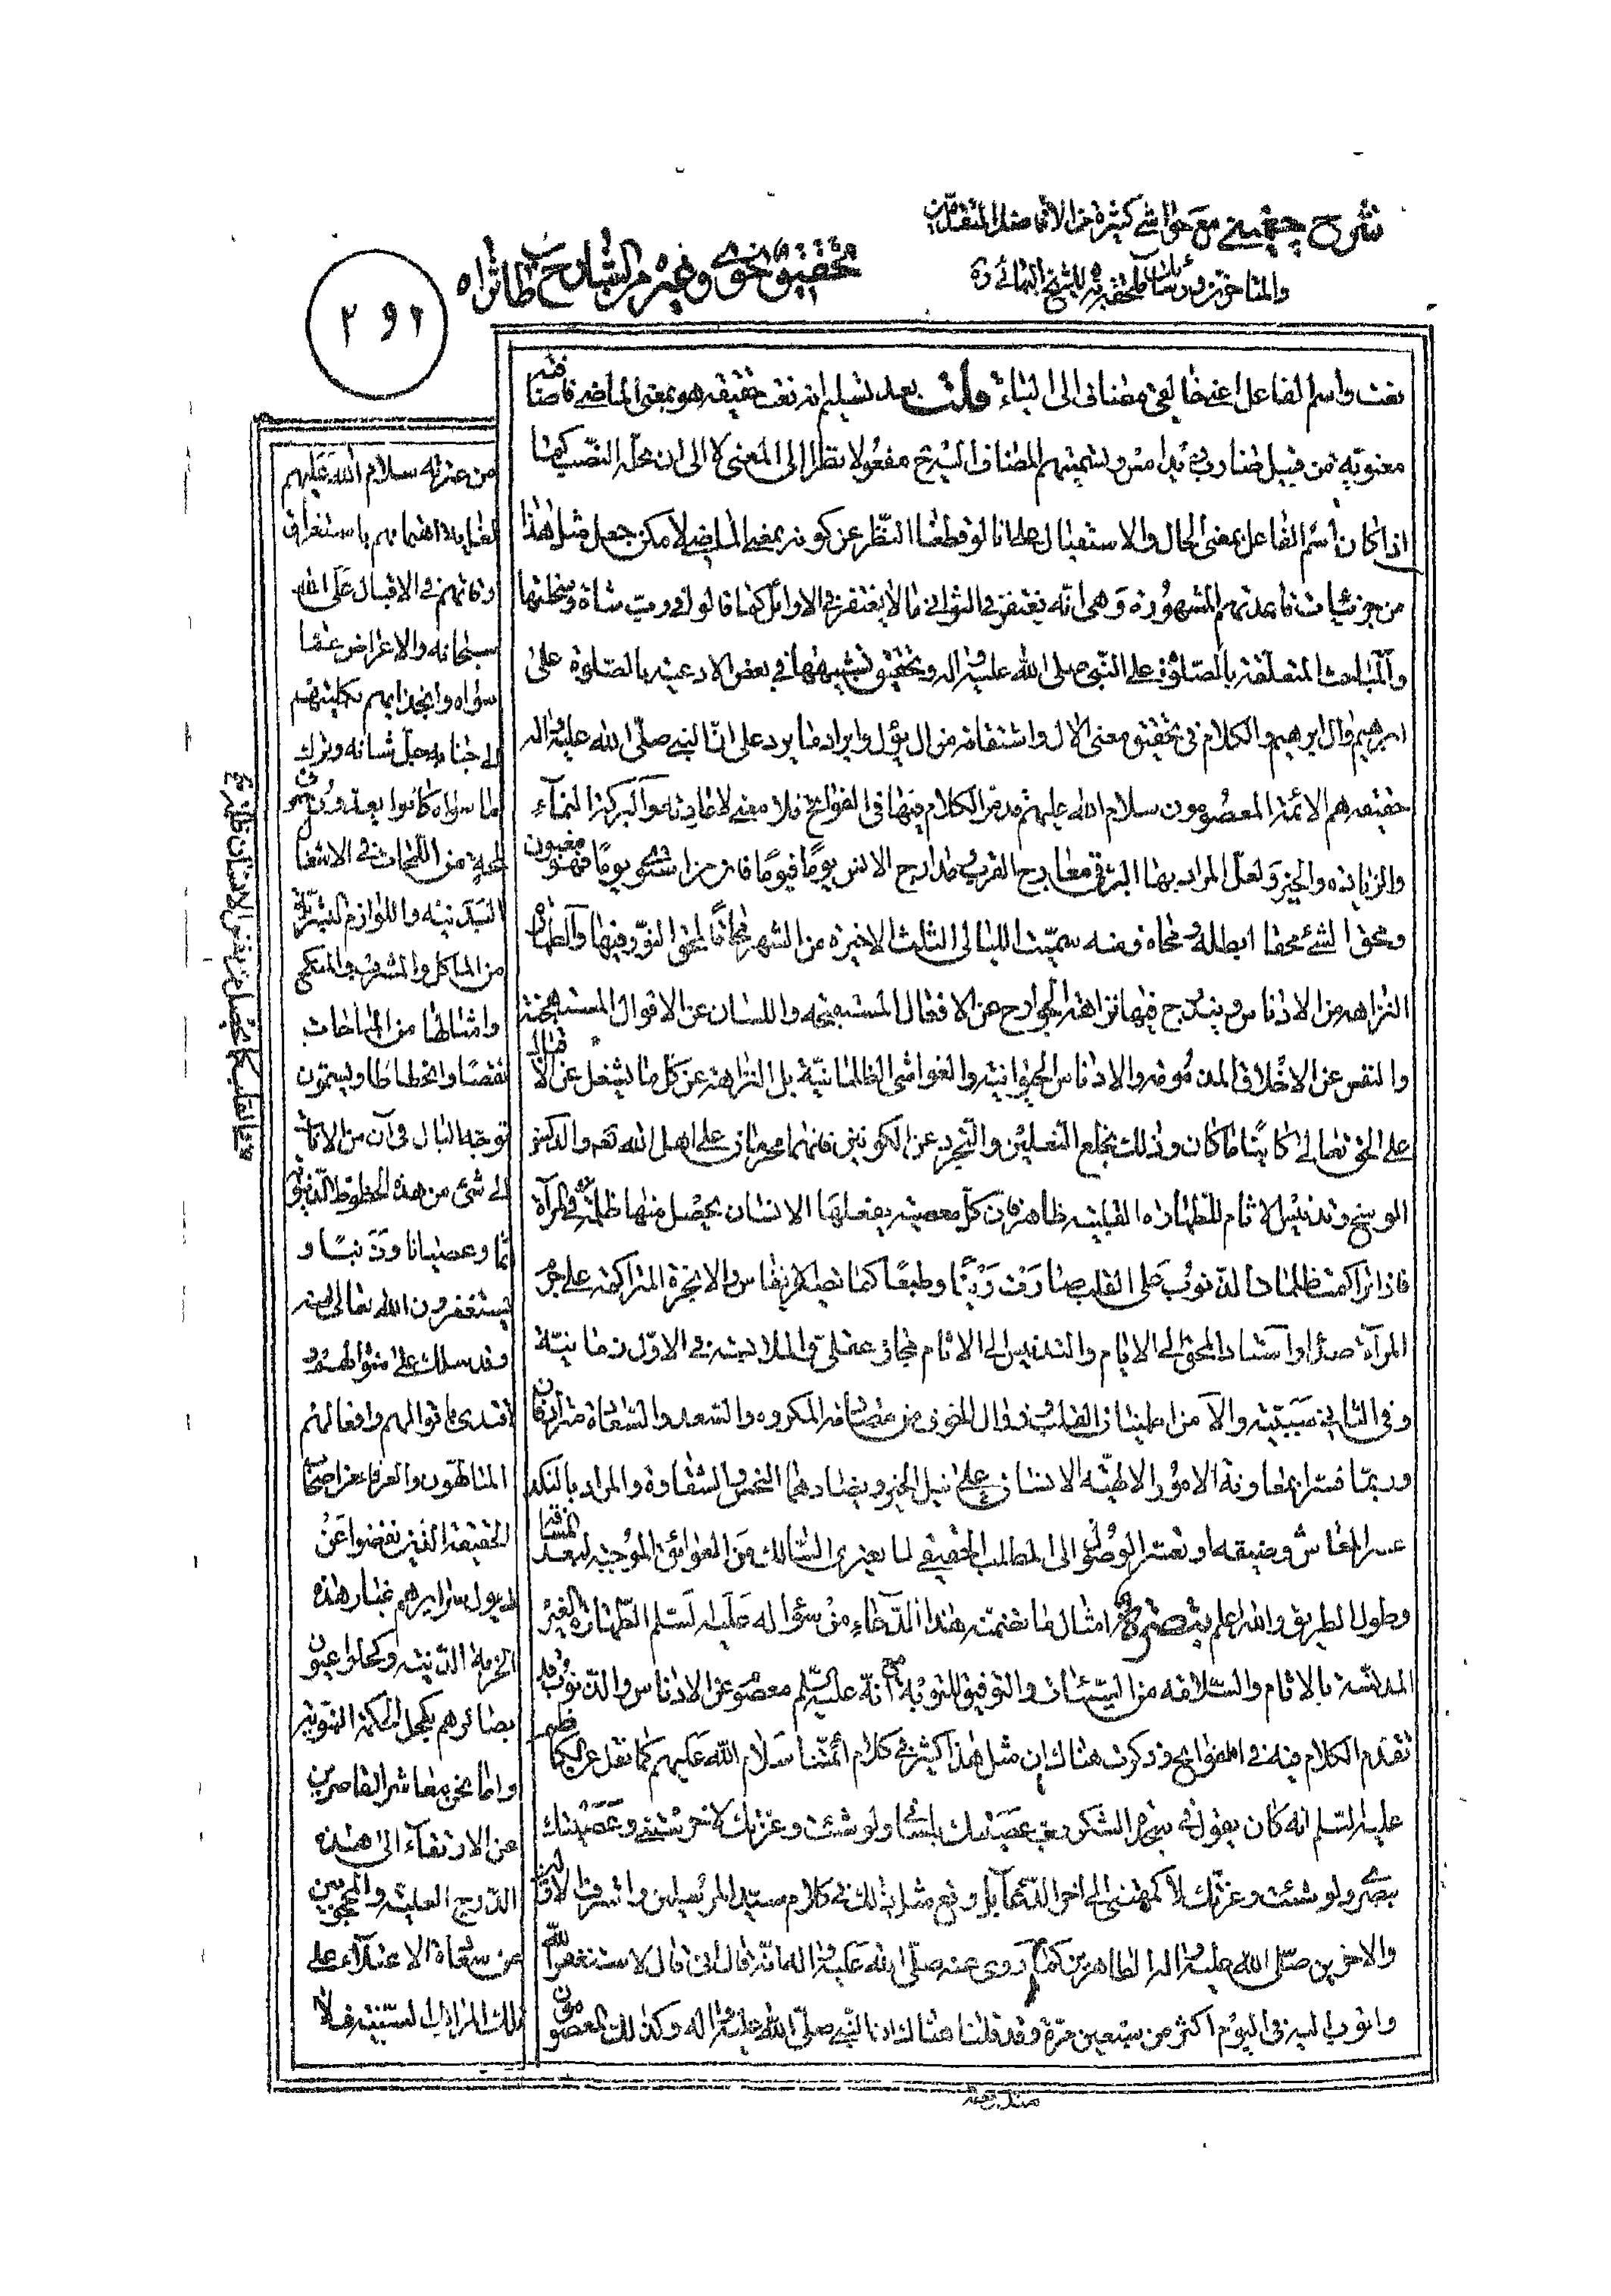 شرح چغمينے مع حواشے كثيرة من الافاضل المتقدمين
والمتاخرين ورسالة ملحقة به للشيخ البهائے ره
تحقيق نحوے وغيره من التبيان ح ب طاثراه
٢ و ٢
نعت واسم الفاعل اعنى خالقى مضاف الى الياء قلت بعد تسليم انه نعت حقيقة هو بمعنى الماضى فاضافته
معنوية من قبيل ضارب زيد امس وتسميتهم المضاف اليه ح مفعولا نظرا الى المعنى لا الى ان محله النصب كما
اذا كان اسم الفاعل بمعنى الحال والاستقبال على انا لو قطعنا النظر عن كونه بمعنى الماضى لامكن جعل مثل هذا
من جزئيات قاعدتهم المشهورة وهى انه يغتفر فى الثوانى ما لا يغتفر فى الاوائل كما قالوا فى رب شاة وسخلتها
والمباحث المتعلقة بالصلوة على النبى صلى الله عليه واله وتحقيق تشبيهها فى بعض الادعية بالصلوة على
ابرهيم وال ابرهيم والكلام فى تحقيق معنى الال واشتقاقه من ال يؤل وايراد ما يرد على ان ال النبى صلى الله عليه واله
حقيقة هم الائمة المعصومون سلام الله عليهم قد مر الكلام فيها فى الفواتح فلا معنى لاعادته والبركة النماء
والزيادة والخير ولعل المراد بها الترقى فى معارج القرب ومدارج الانس يوما فيوما فان من استوى يوماه فهو مغبون
ومحق الشئ محقا ابطله ومحاه ومنه سميت الليالى الثلث الاخيرة من الشهر محاقا لمحق النور فيها والطهارة
النزاهة من الادناس ويندرج فيها نزاهة الجوارح عن الافعال المستقبحة واللسان عن الاقوال المستهجنة
والنفس عن الاخلاق المذمومة والادناس الجسمانية والغواشى الظلمانية بل النزاهة عن كل ما يشغل عن الاقبال
على الحق تعالى كائنا ما كان وذلك بخلع النعلين والتجرد عن الكونين فانهما محرمان على اهل الله تعه والدنس
الوسخ وتدنيس الاثام للطهارة القلبية ظاهر فان كل معصية يفعلها الانسان يحصل منها ظلمة فى المرآة
فاذا تراكمت ظلمات الذنوب على القلب صارت رينا وطبعا كما تصير الانفاس والابخرة المتراكمة على جرم
المرآة صدأ واسناد المحق الى الايام والتدنيس الى الاثام مجاز عقلى والملابسة فى الاول زمانية
وفى الثانى سببية والامن اطمينان القلب وزوال الخوف من مصادفة المكروه والسعد والسعادة مترادفان
وربما فسرا بمعاونة الامور الالهية الانسان على نيل الخير ويضادهما النحس والشقاوة والمراد بالنكد
عسر المعاش وضيقه او تعسر الوصول الى المطالب الحقيقى لما يعترى السالك من العوائق الموجبة لبعد المسافة
وطول الطريق والله اعلم تبصرة امثال ما تضمنه هذا الدعاء من سؤاله عليه السلم الطهارة الغير
المدنسة بالاثام والسلامة من السيئات والتوفيق للتوبة مع انه عليه السلم معصوم عن الادناس والذنوب قد
تقدم الكلام فيه فى الفواتح وذكرت هناك ان مثل هذا كثير فى كلام ائمتنا سلام الله عليهم كما نقل عن الكاظم
عليه السلم انه كان يقول فى سجدة الشكر رب عصيتك بلسانى ولو شئت وعزتك لاخرستنى وعصيتك
ببصرى ولو شئت وعزتك لاكمهتنى الى اخر الدعاء بل وقع مثل ذلك فى كلام سيد المرسلين واشرف الاولين
والاخرين صلى الله عليه واله الطاهرين كما روى عنه صلى الله عليه واله انه قال انى لاستغفر الله
واتوب اليه فى اليوم اكثر من سبعين مرة وقد قلنا هناك ان النبى صلى الله عليه واله وكذلك المعصومون
من عترته سلام الله عليهم
لما اهتمامهم باستغراق
اوقاتهم فى الاقبال على الله
سبحانه والاعراض عما
سواه وانجذابهم بكليتهم
الى جنابه جل شانه وترك
ما سواه كانوا يعدون
لمحة من اللمحات فى الاشغال
البدنية واللوازم البشرية
من الماكل والمشرب والمنكح
وامثالها من المباحات
نقصا وانحطاطا ويسمون
توجه البال فى آن من الانات
الى شئ من هذه الحظوظ الدنيوية
اثما وعصيانا وذنبا و
يستغفرون الله تعالى منه
وقد سلك على منوالهم و
اقتدى باقوالهم وافعالهم
المتالهون والعرفاء من اصحاب
الحقيقة الذين نفضوا عن
ذيول سرايرهم غبار هذه
الخربة الدنية وكحلوا عيون
بصائرهم بكحل الحكمة النبوية
واما نحن معاشر القاصرين
عن الارتقاء الى هذه
الدرج العلية والمحجوبين
عن سعادة الاعتلاء على
تلك المراتب السنية فلا
منه رحمه